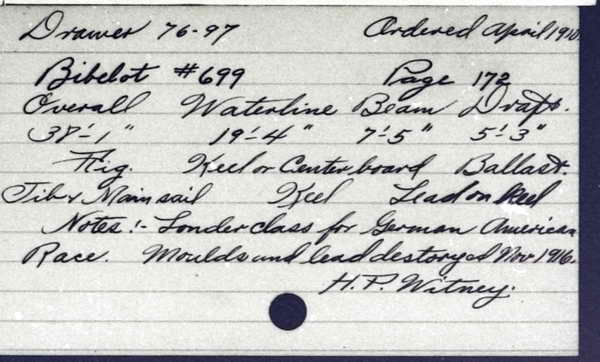 Drawer 76-97 Ordered April 1910
Bibelot #699 Page 172
Overall Waterline Beam Draft.
37'-1" 19'-4" 7'-5" 5'-3"
Rig. Keel or Centerboard Ballast.
Jib & Mainsail Keel Lead on Keel
Notes:- Sonder class for German American
Race. Moulds and lead destoryed Nov 1916.
H.P. Witney.